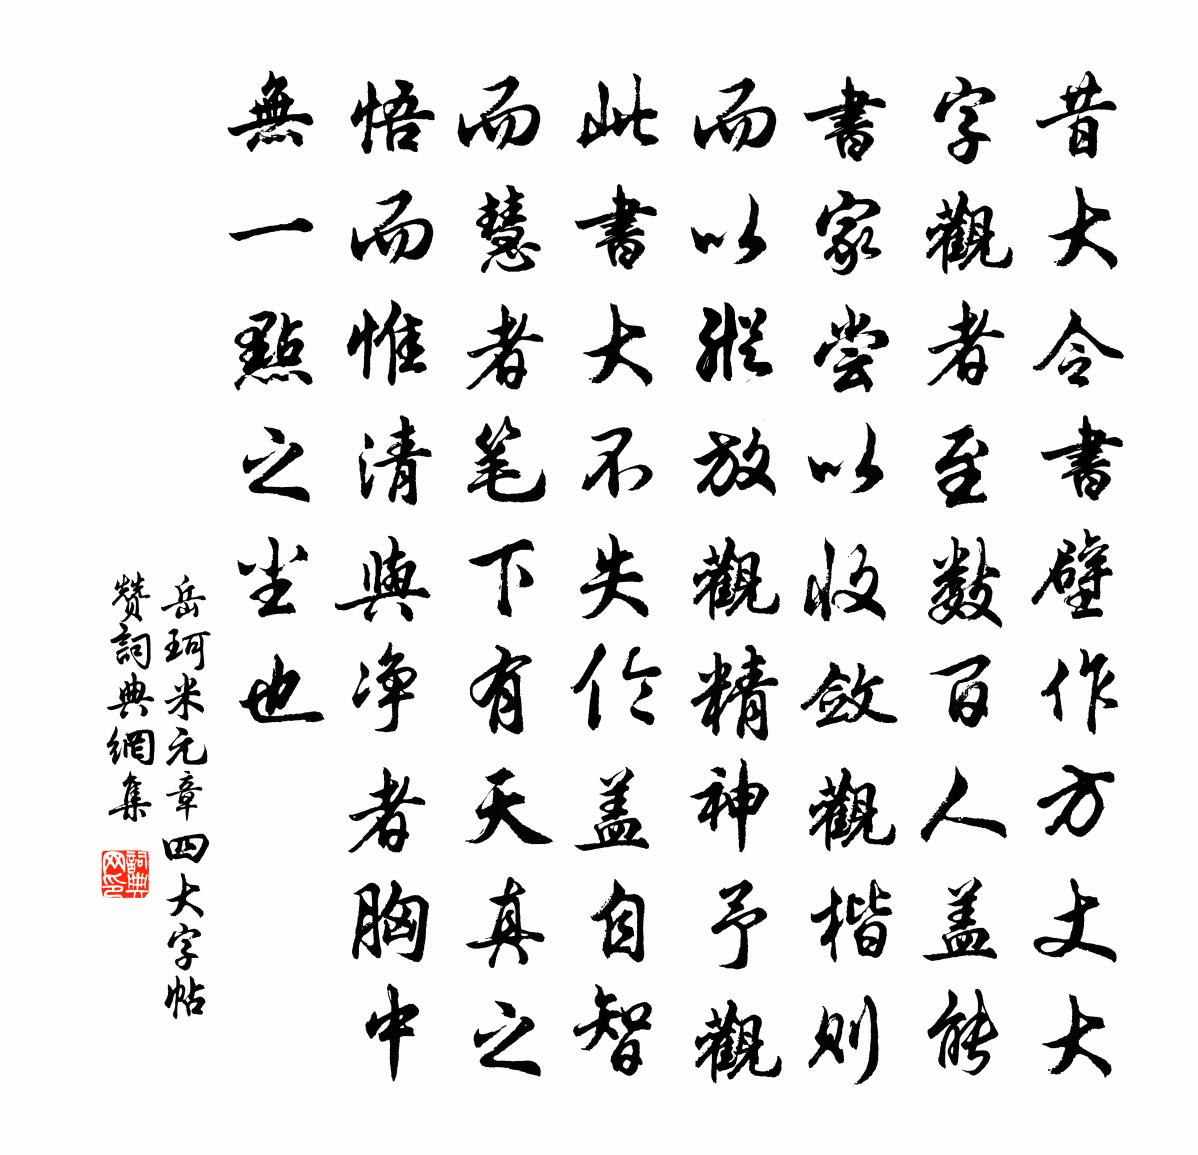 昔大令書壁作方丈大
字觀者至数百人盖能
書家尝以收斂觀楷則
而以縱放觀精神予觀
此書大不失伦盖自智
而慧者笔下有天真之
悟而惟清與净者胸中
無一點之尘也
岳珂米元章四大字帖
赞詞典網集
詞典网印